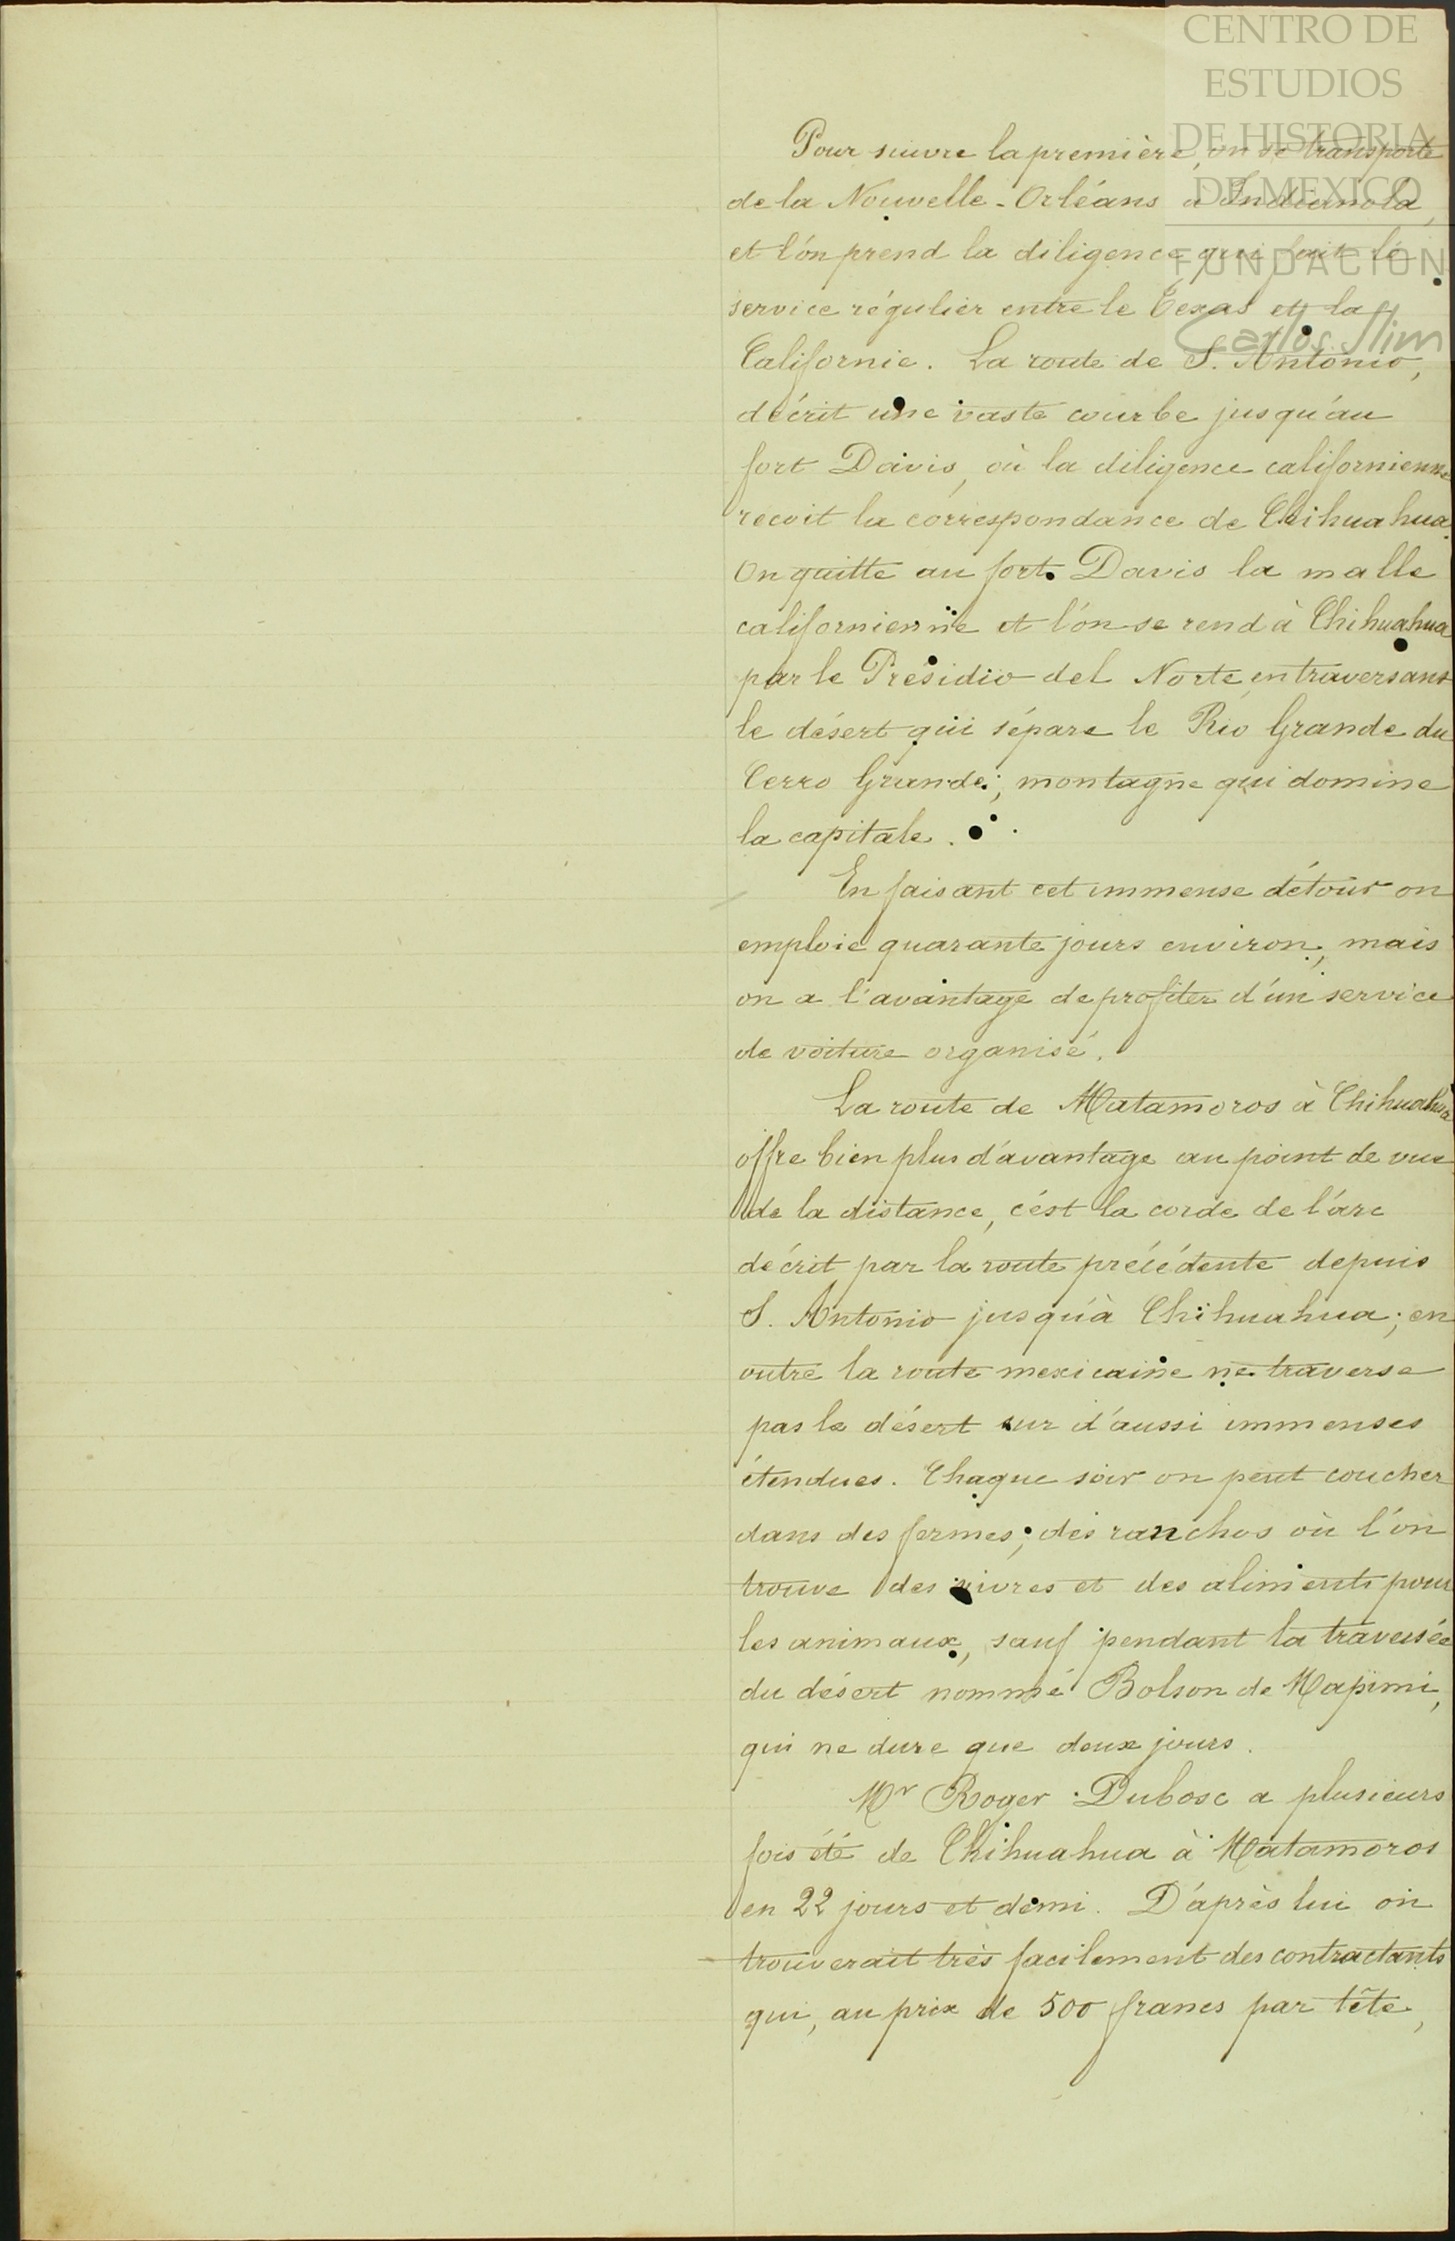 CENTRO DE
ESTUDIOS
DE HISTORIA
DE MEXICO
FUNDACIÓN
Carlos Slim
Pour suivre la première, on se transporte
de la Nouvelle-Orléans à Indianola,
et l'on prend la diligence qui fait le
service régulier entre le Texas et la
Californie. La route de S. Antonio,
décrit une vaste courbe jusqu'au
fort Davis, où la diligence californienne
recoit la correspondance de Chihuahua.
On quitte au fort Davis la malle
californienne et l'on se rend à Chihuahua
par le Présidio del Norte, en traversant
le désert qui sépare le Rio Grande du
Cerro Grande, montagne qui domine
la capitale.
En faisant cet immense détour on
emploie quarante jours environ, mais
on a l'avantage de profiter d'un service
de voiture organisé.
La route de Matamoros à Chihuahua
offre bien plus d'avantage au point de vue
de la distance, c'est la corde de l'arc
décrit par la route précédente depuis
S. Antonio jusqu'à Chihuahua; en
outre la route mexicaine ne traverse
pas le désert sur d'aussi immenses
étendues. Chaque soir on peut coucher
dans des fermes, des ranchos où l'on
trouve des vivres et des aliments pour
les animaux, sauf pendant la traversée
du désert nommé Bolson de Mapimi,
qui ne dure que deux jours.
Mr Roger Dubosc a plusieurs
fois été de Chihuahua à Matamoros
en 22 jours et demi. D'après lui on
trouverait très facilement des contractants
qui, au prix de 500 francs par tête,